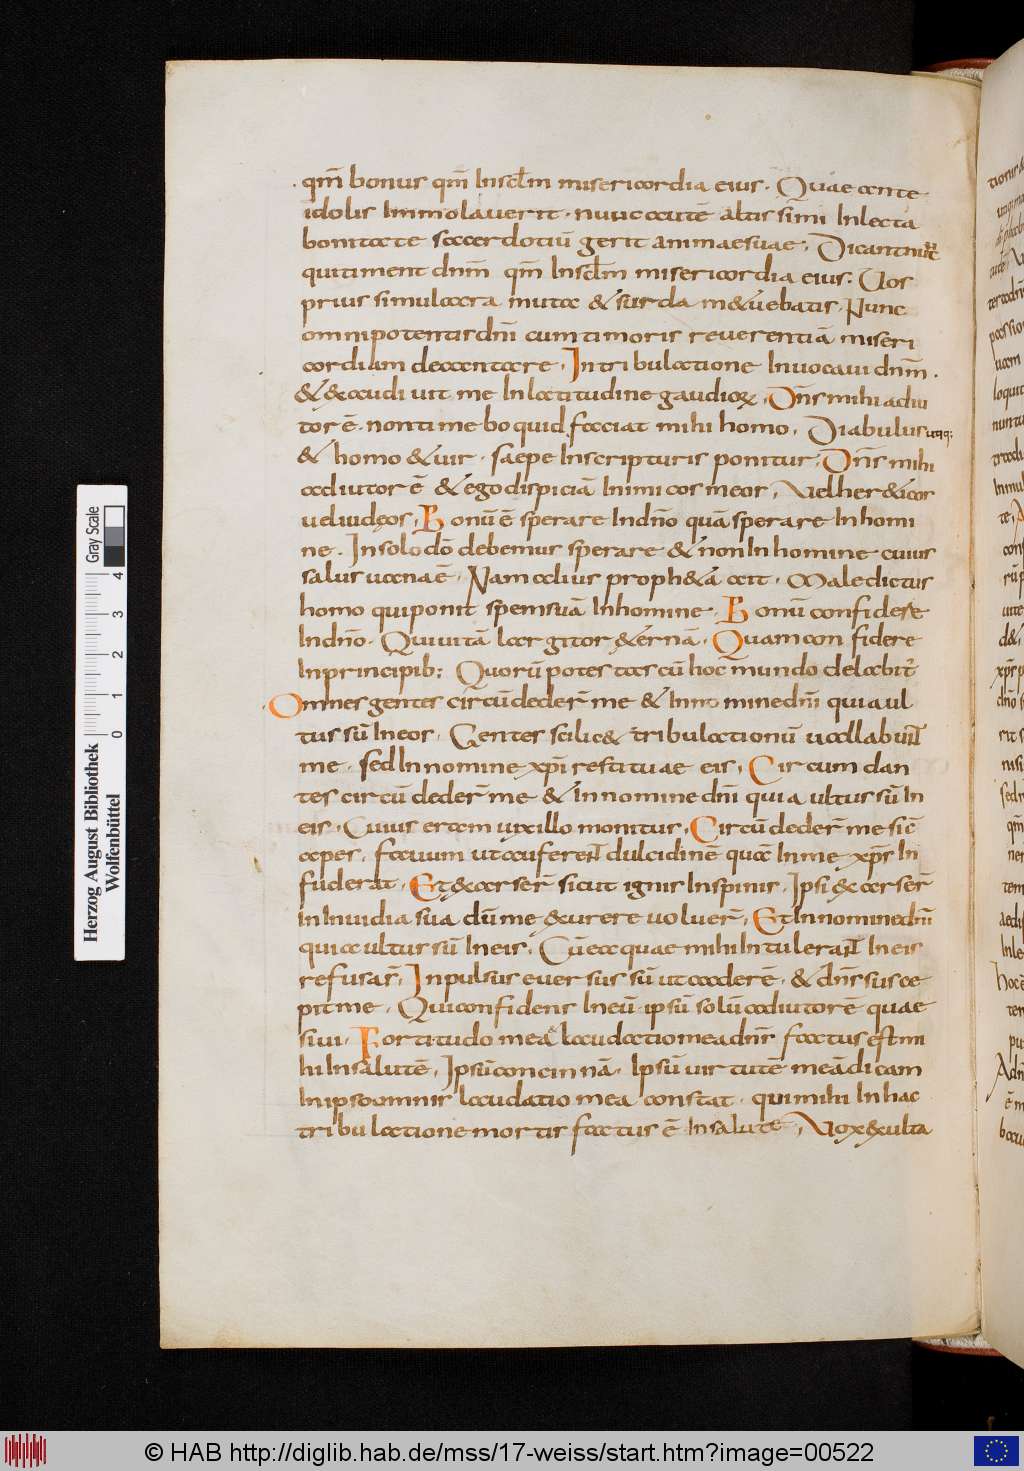 qm̄ bonus qm̄ Insclm̄ misericordia eius. Quae ante
idolis Immolauerit. nunc autē altissimi Inlecta
bonitate sacerdotiū gerit animaesuae; Dicantnunc
quitiment dnm̄ qm̄ Insclm̄ misericordia eius. Uos
prius simulacra muta & surda m&uebatis. Nunc
omnipotentisdn̄i cumtimoris reuerentiā miseri
cordiam decantare. Intribulatione Inuocaui dnm̄.
& exaudiuit me Inlatitudine gaudior. Dn̄s mihi adiu
tor ē. nontimebo quid faciat mihi homo. Diabulus utiq;
& homo & uir. saepe Inscripturis ponitur. Dn̄s mihi
adiutor ē & ego dispiciā Inimicos meos. Uel her&icos
ueliudęos. Bonū ē sperare Indn̄o quā sperare Inhomi
ne. Insolo dō debemus sperare & non In homine cuius
salus uana ē. Nam alius proph&a ait. Maledictus
homo quiponit spemsuā Inhomine. Bonū confidere
Indn̄o. Quiuitā largitor &ernā. Quam confidere
Inprincipib; Quorū potestas cū hoc mundo delabit̄
Omnes gentes circūdeder̄ me & Innomine dn̄i quiaul
tus sū Ineos. Gentes scilic& tribulationū uallabunt
me. sed Innomine xp̄i restituae eis. Circumdan
tes circūdeder̄ me & Innomine dn̄i quia ultus sū In
eis. Cuius eram uixillo monitus. Circūdeder̄ me sic̄
apes. fauum utauferent dulcidinē quā Inme xps̄ In
fuderat. Et exarser̄ sicut ignis Inspinis. Ipsi exarser̄
In Inuidia sua dū me exurere uoluer̄. Et Innominedn̄i
quia ultus sū Ineis. Cū ea quae mihi Intulerant Ineis
refusar̄. Inpulsus euersus sū utcaderē. & dn̄s susce
pitme. Quiconfidens Ineū ipsū solū adiutorē quae
siui. Fortitudo mea & laudatio mea dn̄s factus est mi
hi Insalutē. Ipsū concinnā. Ipsū uirtutē meā dicam
Inipso omnis laudatio mea constat. qui mihi Inhac
tribulatione mortis factus ē Insalutē. Uox exulta
Herzog August Bibliothek
Wolfenbüttel
Gray Scale
0 1 2 3 4
© HAB http://diglib.hab.de/mss/17-weiss/start.htm?image=00522